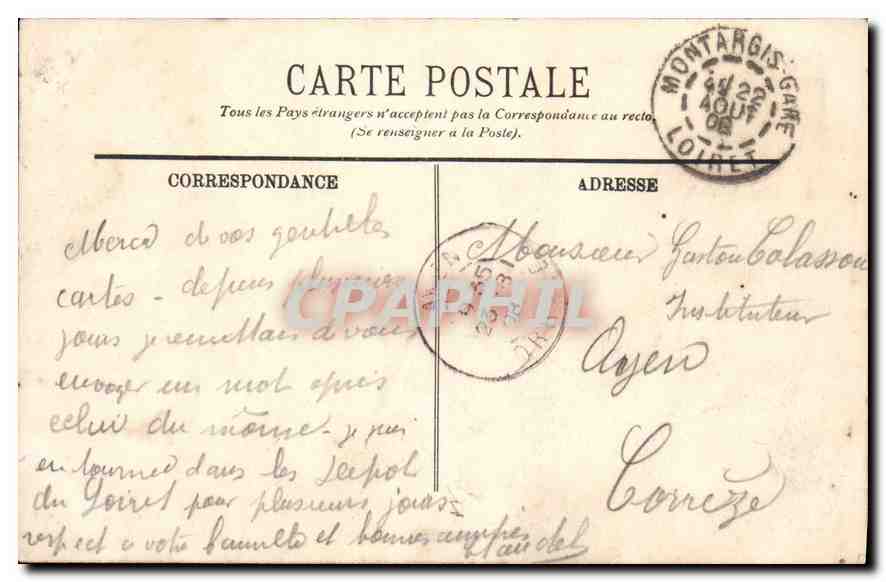 CARTE POSTALE
Tous les Pays étrangers n'acceptent pas la Correspondance au recto.
(Se renseigner à la Poste).
MONTARGIS-GARE
22
AOUT
08
LOIRET
CORRESPONDANCE
ADRESSE
Merci de vos gentilles
cartes - depuis plusieurs
jours je remettais à vous
envoyer un mot après
celui du même - je suis
en tournée dans les
du Loiret pour plusieurs jours
respect à votre famille et bonnes
Monsieur Gaston Calasson
Instituteur
Ayen
Corrèze
AYEN
23
CPAPHIL